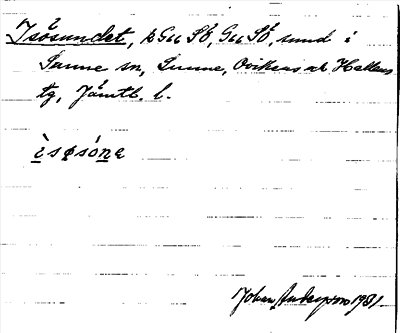 Isösundet, å Gu SÖ, Gu SÖ, sund i
Sunne sn, Sunne, Oviken o Hallens
tg, Jämtl. l.
ìsøsóne
Johan Anderson 1931.